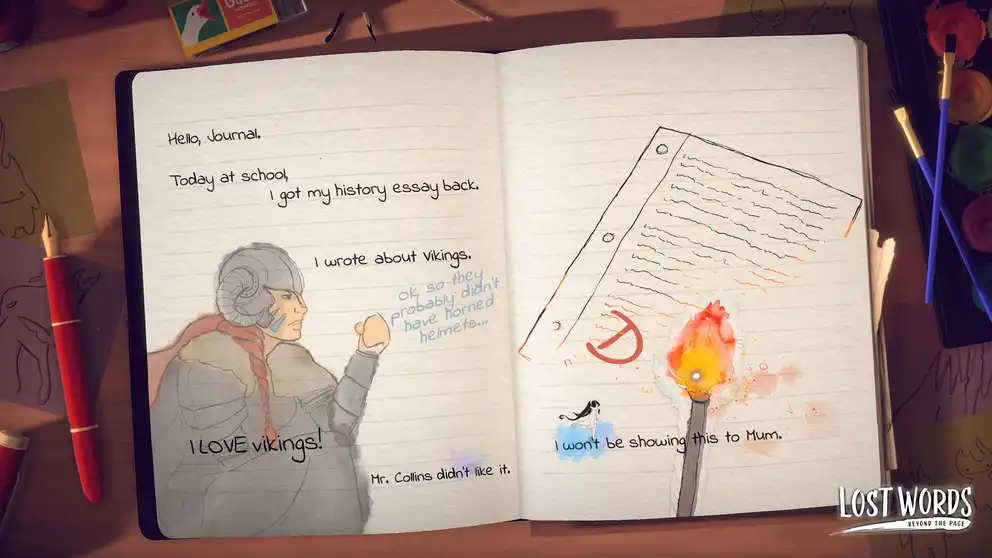 Hello, Journal.
Today at school,
I got my history essay back.
I wrote about vikings.
ok, so they
probably didn't
have horned
helmets...
I LOVE vikings!
Mr. Collins didn't like it.
D
I won't be showing this to Mum.
LOST WORDS
BEYOND THE PAGE